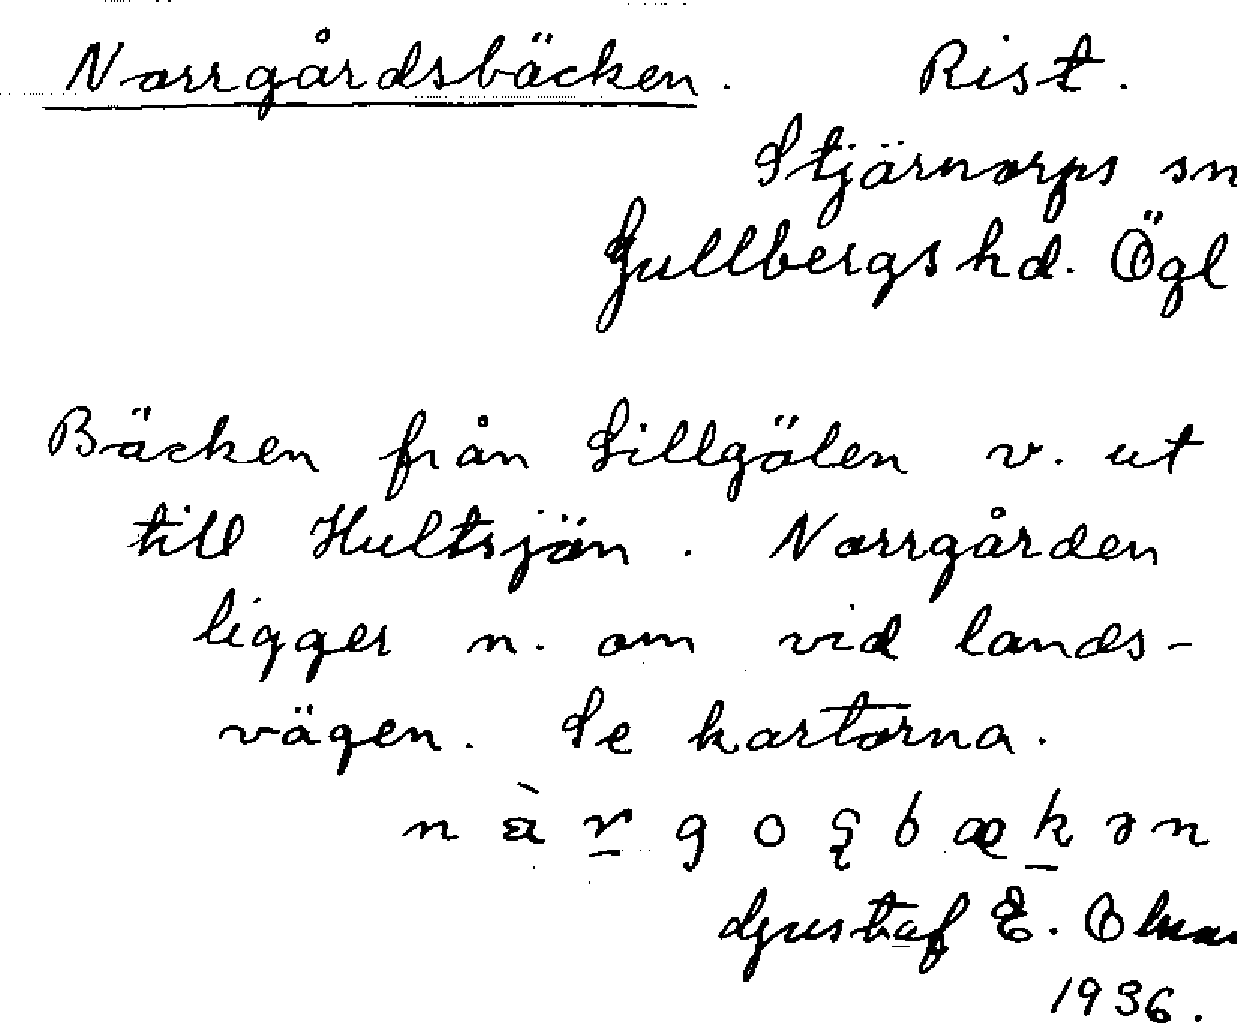 Norrgårdsbäcken. Rist.
Stjärnorps sn
Gullbergs hd. Ögl
Bäcken från Lillgölen v. ut
till Hultsjön. Norrgården
ligger n. om vid lands-
vägen. Se kartorna.
Gustaf E.
1936.